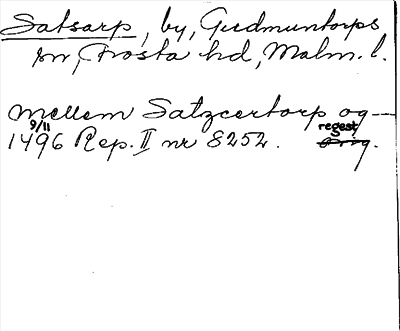 Satsarp, by, Gudmuntorps
sn, Frosta hd, Malm. l.
mellem Satzcertorp og —
9/11 regest
1496 Rep. II nr 8252. orig.